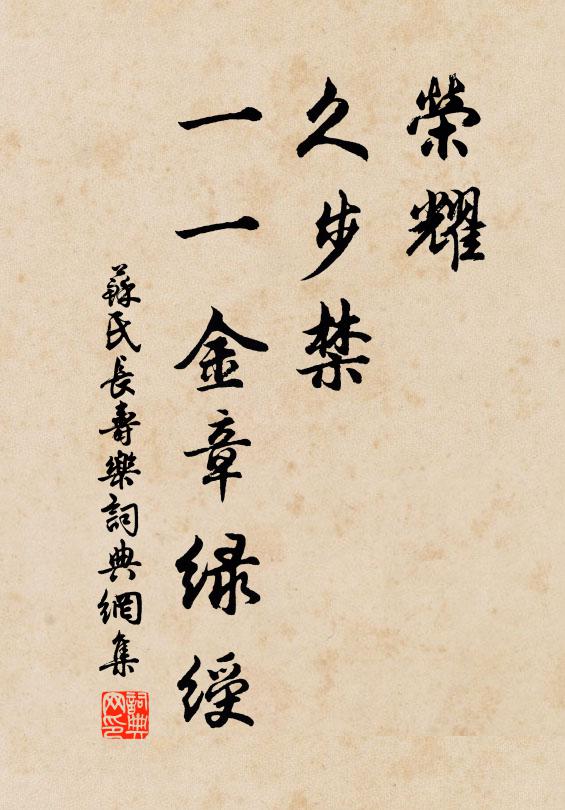 榮耀
久步禁
一一金章緑綬
蘇氏長壽樂詞典網集
詞典网印